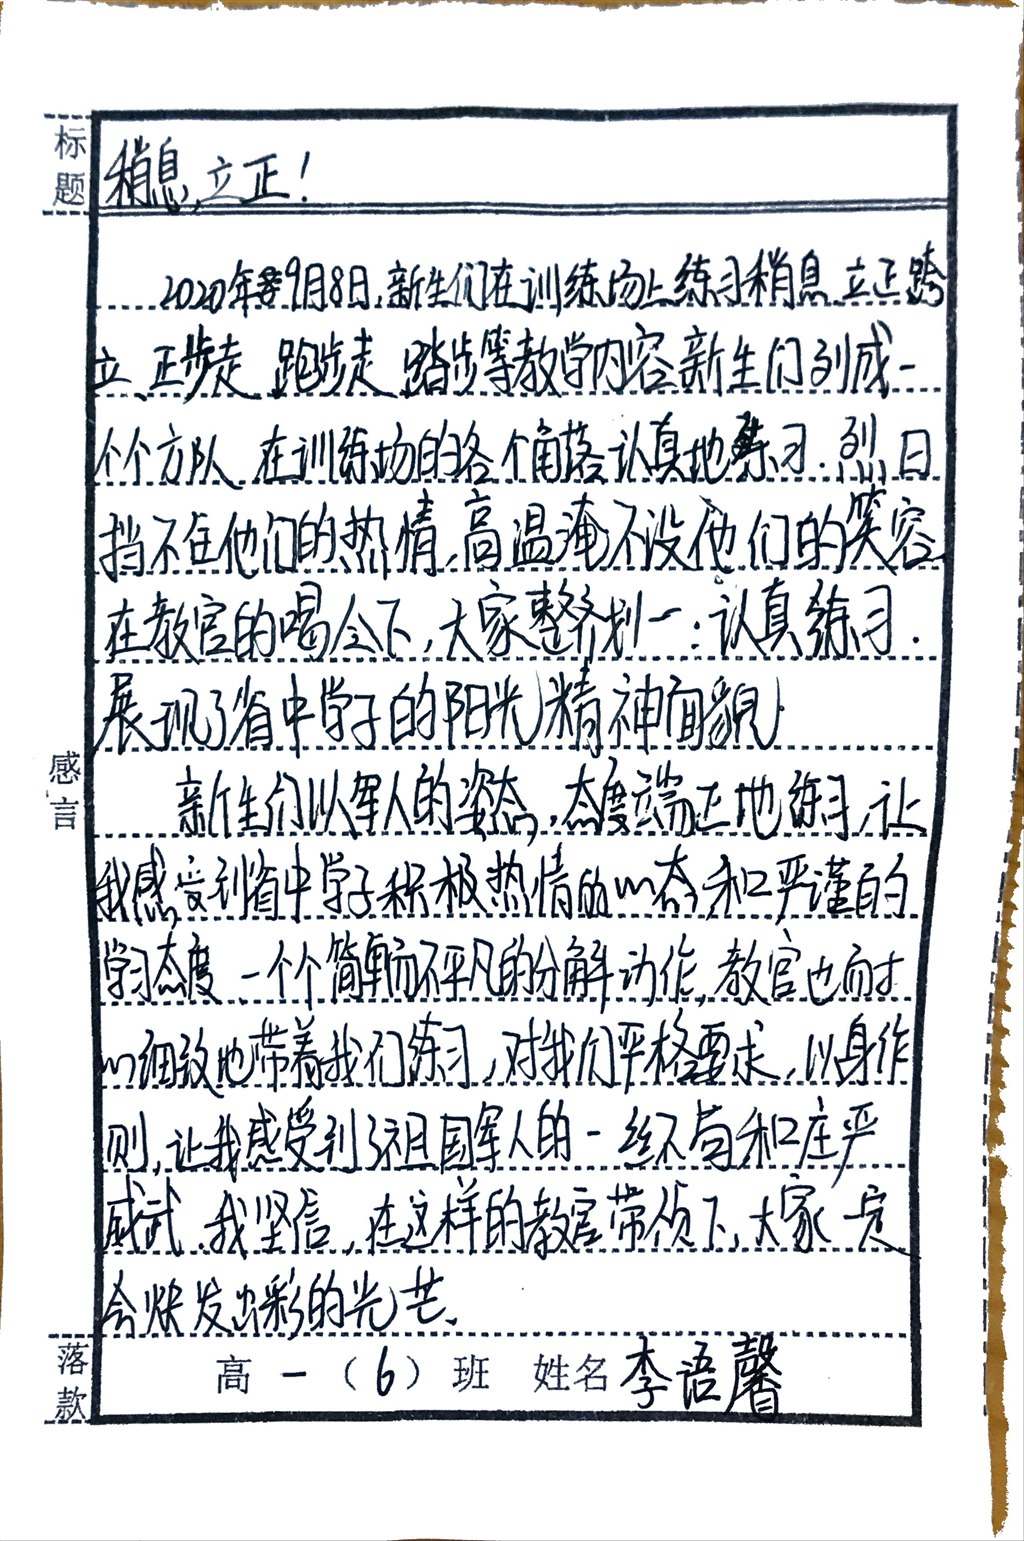 标题
稍息,立正!
2020年9月8日,新生们在训练场上练习稍息、立正、跨
立、正步走、跑步走、踏步等教学内容。新生们列成一
个个方队,在训练场的各个角落认真地练习.烈日
挡不住他们的热情,高温淹不没他们的笑容。
在教官的喝令下,大家整齐划一.认真练习.
展现了省中学子的阳光精神面貌。
感言
新生们以军人的姿态,态度端正地练习,让
我感受到省中学子积极热情的心态和严谨的
学习态度、一个个简单而不平凡的分解动作,教官也耐
心细致地带着我们练习,对我们严格要求,以身作
则,让我感受到了祖国军人的一丝不苟和庄严
威武.我坚信,在这样的教官带领下,大家一定
会焕发出彩的光芒.
落款
高一(6)班 姓名李语馨